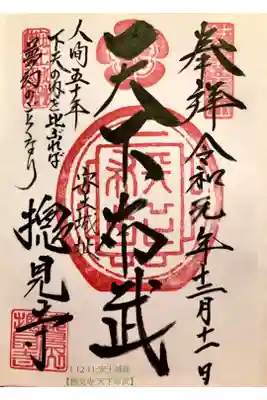 奉拝 令和元年十二月十一日
天下布武
安土城址
人間五十年
下天の内を比ぶれば
夢幻のごとくなり
摠見寺
1 12 11 安土城址
【摠見寺 天下布武】